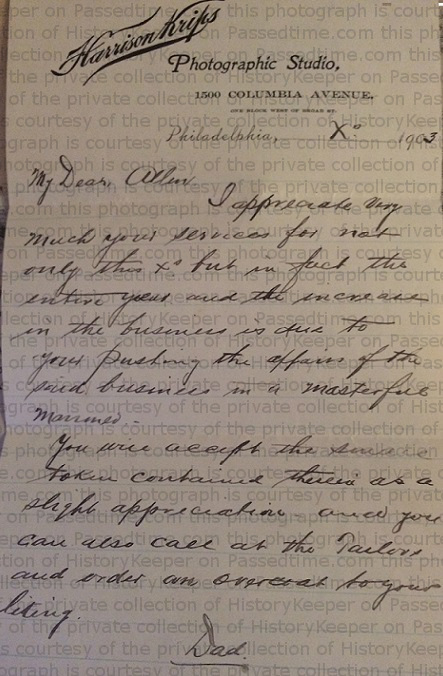 Harrison Krips
Photographic Studio,
1500 COLUMBIA AVENUE,
ONE BLOCK WEST OF BROAD ST.
Philadelphia, Xº 1903
My Dear Allen
I appreciate very
much your services for not
only this Xº but in fact the
entire year and the increase
in the business is due to
your pushing the affairs of the
said business in a masterful
manner.
You will accept the
token contained therein as a
slight appreciation and you
can also call at the Tailors
and order an overcoat to your
liking.
Dad.
this photograph is courtesy of the private collection of HistoryKeeper on Passedtime.com